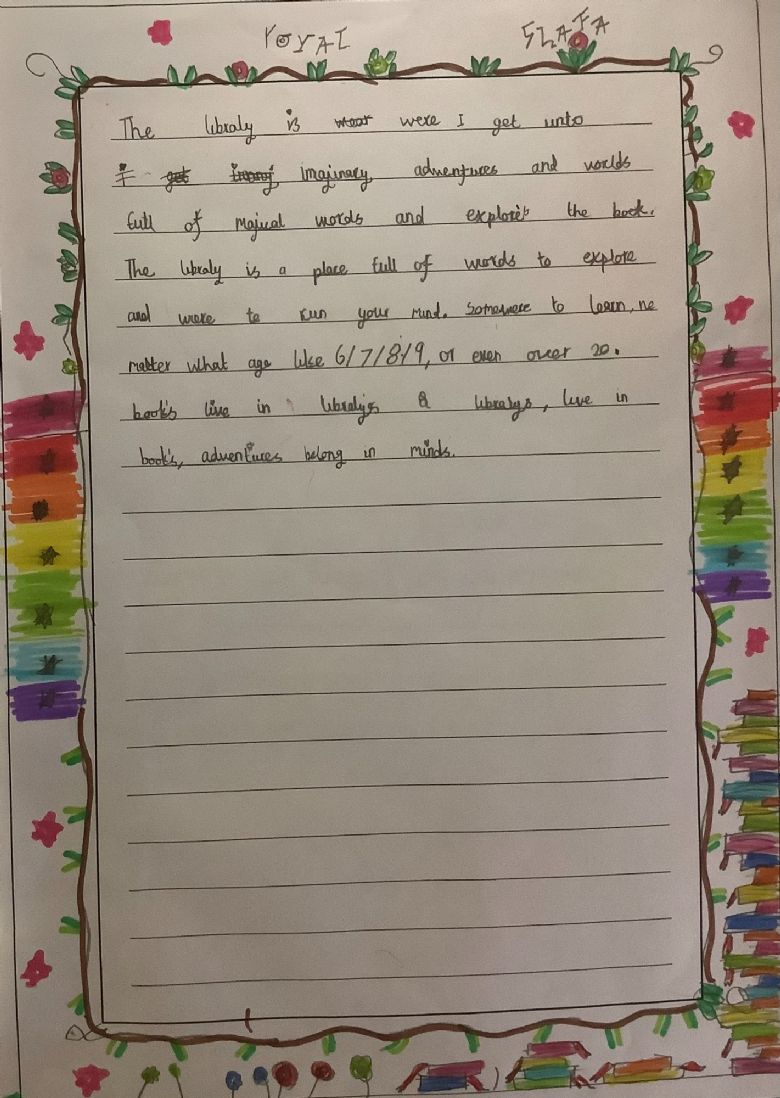 ROYAL SLAFA
The libraly is were I get unto
Imajinary, adventures and worlds
full of majical words and explore's the book.
The libraly is a place full of words to explore
and were to run your mind. Somewere to learn, no
matter what age like 6/7/8/9, or even over 20.
book's live in libralys & libralys, live in
book's, adventures belong in minds.